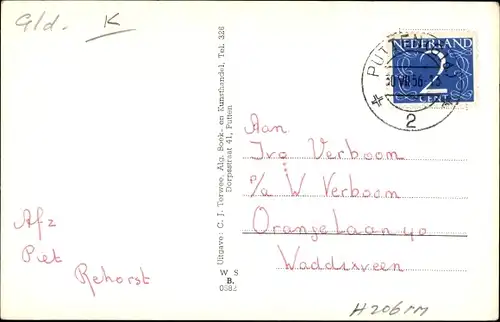 Gld. K
PUTTEN
30 VII 56
2
NEDERLAND
2
CENT
Uitgave: C. J. Terwee, Alg. Boek- en Kunsthandel, Tel. 326
Dorpsstraat 41, Putten
W S
B.
0382
Aan
Ivo Verboom
p/a W Verboom
Oranjelaan 40
Waddixveen
Afz
Piet
Rehorst
H206MM